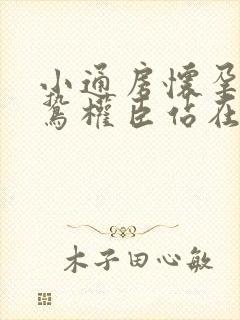 小通房懷孕
鷙權臣佔在
木子田心敏